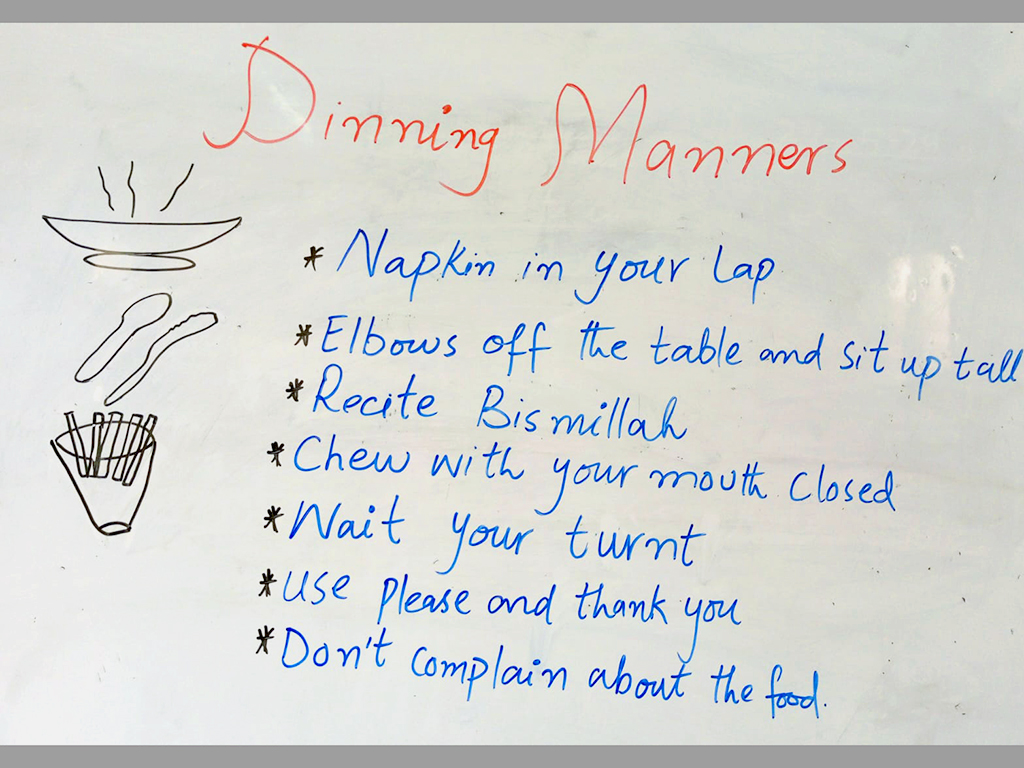 Dinning Manners
* Napkin in your Lap
* Elbows off the table and sit up tall
* Recite Bismillah
* Chew with your mouth closed
* Wait your turnt
* Use please and thank you
* Don't complain about the food.